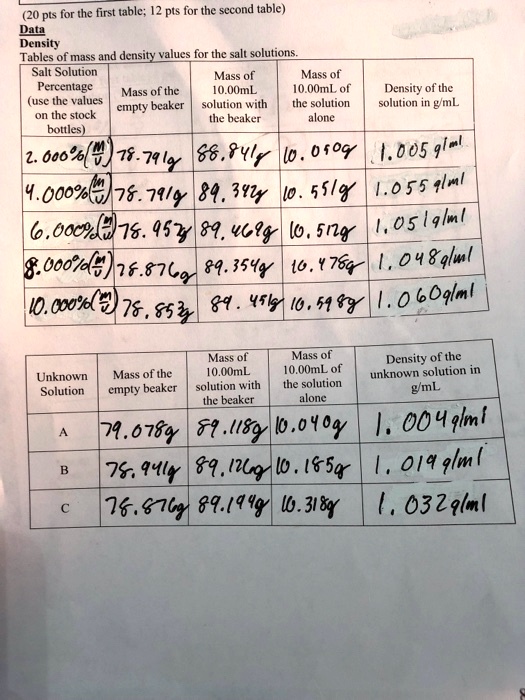 (20 pts for the first table; 12 pts for the second table)
Data
Density
Tables of mass and density values for the salt solutions.
Salt Solution Percentage (use the values on the stock bottles) | Mass of the empty beaker | Mass of 10.00mL solution with the beaker | Mass of 10.00mL of the solution alone | Density of the solution in g/mL
2.000% (m/v) 78.791g 88.841g 10.050g 1.005 g/ml
4.000% (m/v) 78.791g 89.342g 10.551g 1.055 g/ml
6.000% (m/v) 78.957g 89.469g 10.512g 1.051g/ml
8.000% (m/v) 78.876g 89.354g 10.478g 1.048g/ml
10.000% (m/v) 78.853g 89.451g 10.598g 1.060g/ml
Unknown Solution | Mass of the empty beaker | Mass of 10.00mL solution with the beaker | Mass of 10.00mL of the solution alone | Density of the unknown solution in g/mL
A 79.078g 89.118g 10.040g 1.004g/ml
B 78.941g 89.126g 10.185g 1.019 g/ml
C 78.876g 89.194g 10.318g 1.032g/ml